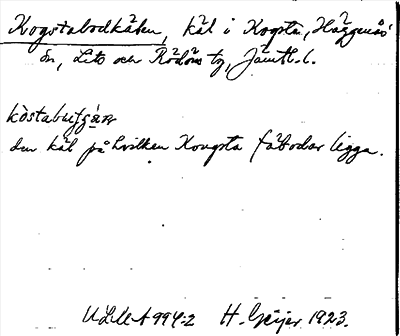 Kogstabodkälen, käl i Kogsta, Häggenås
sn, Lits och Rödöns tg, Jämtl. l.
den käl på hvilken Kougsta fäbodar ligga.
ULMA 994:2 H. Geijer 1923.